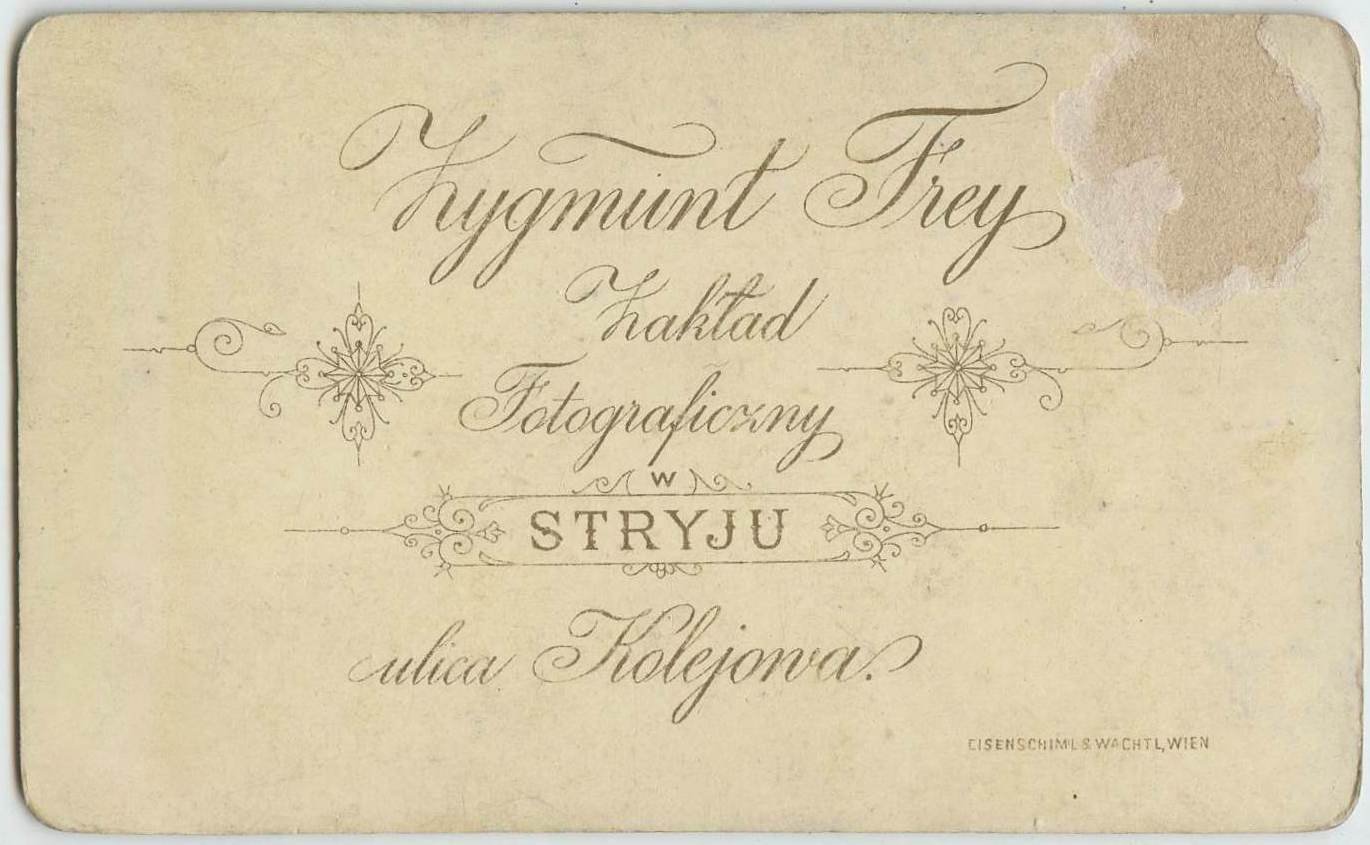 Zygmunt Frey
Zakład
Fotograficzny
W
STRYJU
ulica Kolejowa.
EISENSCHIML & WACHTL, WIEN